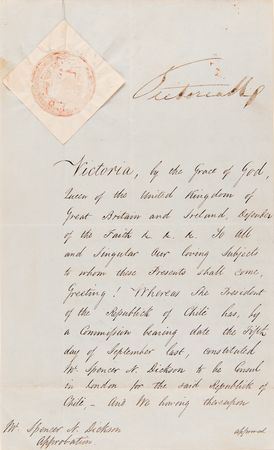 Victoria R
Victoria, by the Grace of God,
Queen of the United Kingdom of
Great Britain and Ireland, Defender
of the Faith &c. &c. &c. To All
and Singular Our loving Subjects
to whom these Presents shall come,
Greeting! Whereas The President
of the Republick of Chili has, by
a Commission bearing date the Fifth
day of September last, constituted
Mr. Spencer N. Dickson to be Consul
in London for the said Republick of
Chili,- And We having thereupon
approved
Mr. Spencer N. Dickson
Approbation